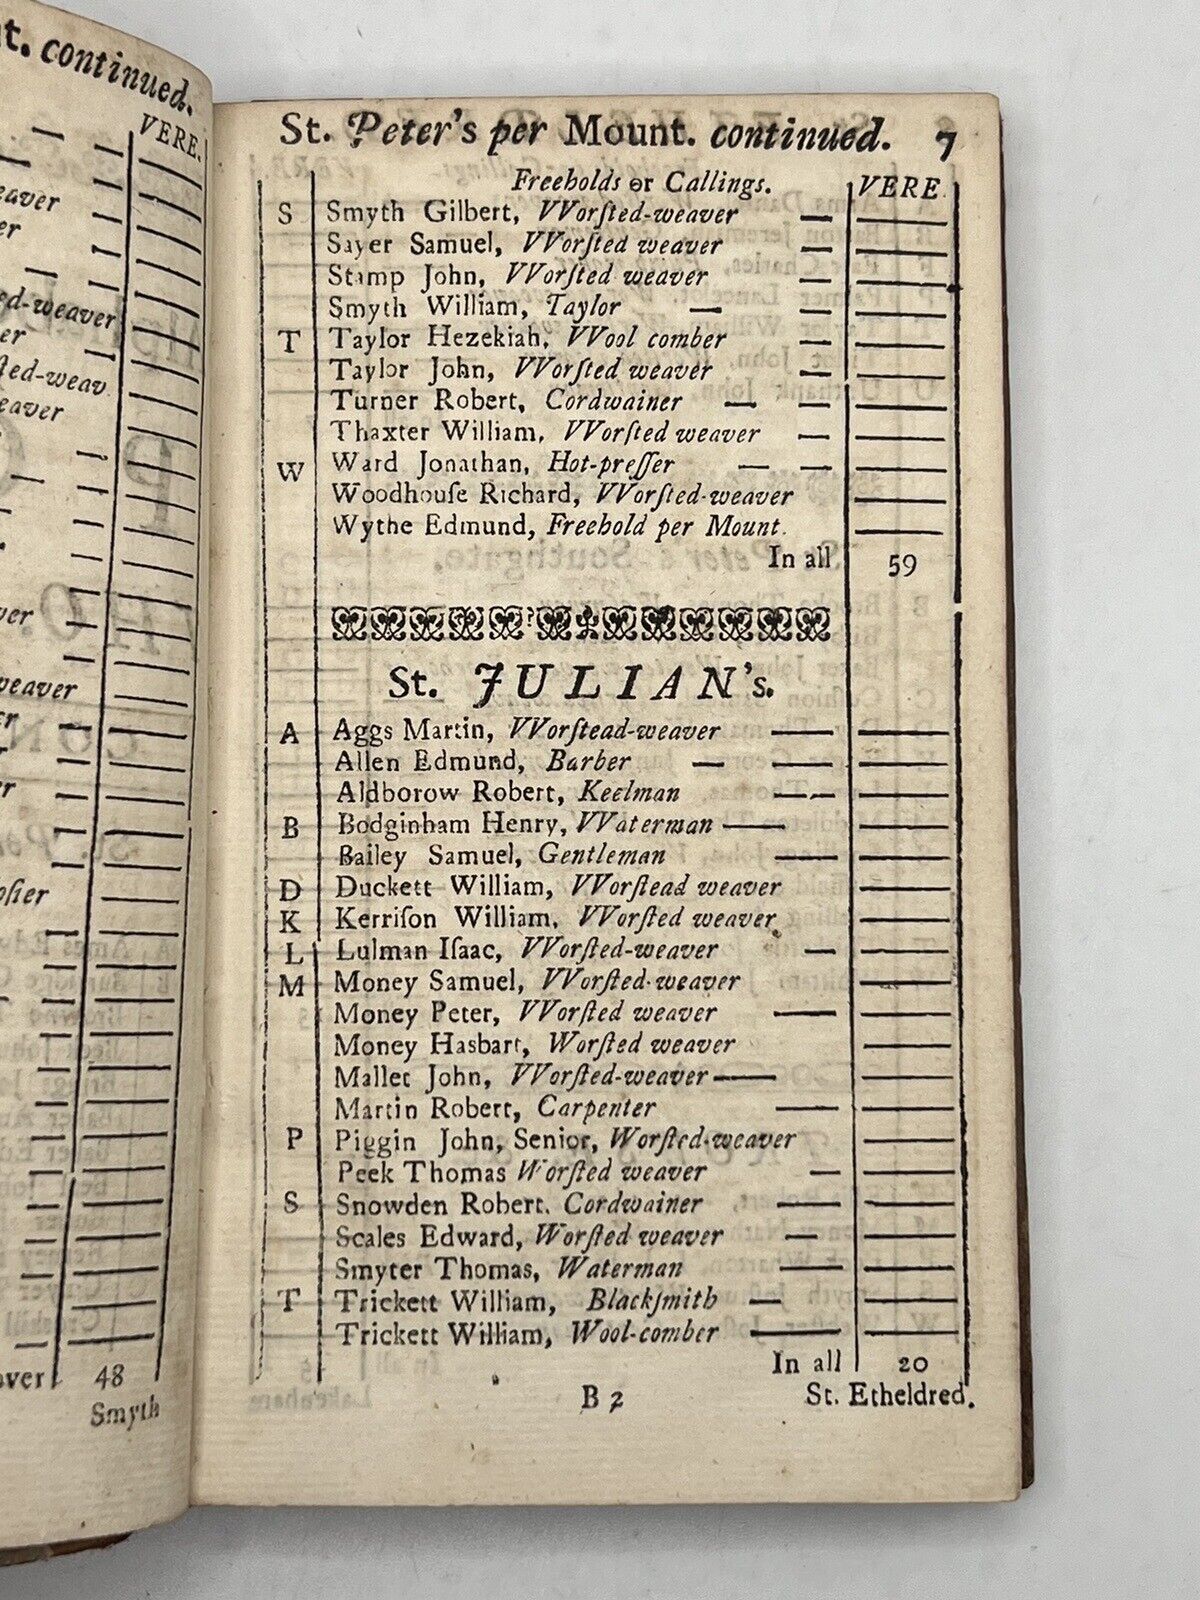 t. continued.
VERE.
eaver
er
ed-weaver
er
sted-weav
eaver
ver
weaver
er
er
osier
over 48
Smyth
St. Peter's per Mount. continued. 7
Freeholds or Callings. VERE
S Smyth Gilbert, VVorſted-weaver
Sayer Samuel, VVorſted weaver
Stamp John, VVorſted weaver
Smyth William, Taylor
T Taylor Hezekiah, VVool comber
Taylor John, VVorſted weaver
Turner Robert, Cordwainer
Thaxter William, VVorſted weaver
W Ward Jonathan, Hot-preſſer
Woodhouſe Richard, VVorſted-weaver
Wythe Edmund, Freehold per Mount.
In all 59
St. JULIAN's.
A Aggs Martin, VVorſtead-weaver
Allen Edmund, Barber
Aldborow Robert, Keelman
B Bodginham Henry, VVaterman
Bailey Samuel, Gentleman
D Duckett William, VVorſtead weaver
K Kerriſon William, VVorſted weaver
L Lulman Iſaac, VVorſted-weaver
M Money Samuel, VVorſted-weaver
Money Peter, VVorſted weaver
Money Hasbart, Worſted weaver
Mallet John, VVorſted-weaver
Martin Robert, Carpenter
P Piggin John, Senior, Worſted-weaver
Peek Thomas Worſted weaver
S Snowden Robert. Cordwainer
Scales Edward, Worſted weaver
Smyter Thomas, Waterman
T Trickett William, Blackſmith
Trickett William, Wool-comber
In all 20
B 2 St. Etheldred.